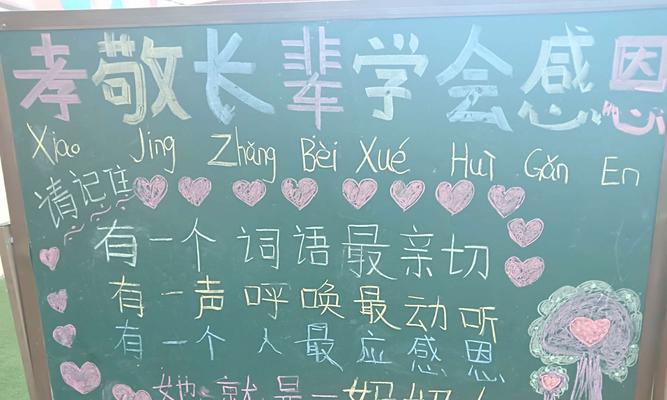 孝敬长辈学会感恩
Xiao Jing Zhǎng Bèi Xué Huì Gǎn En
请记住
有一个词语最亲切
有一声呼唤最动听
有一个人最应感恩
她就是—妈妈